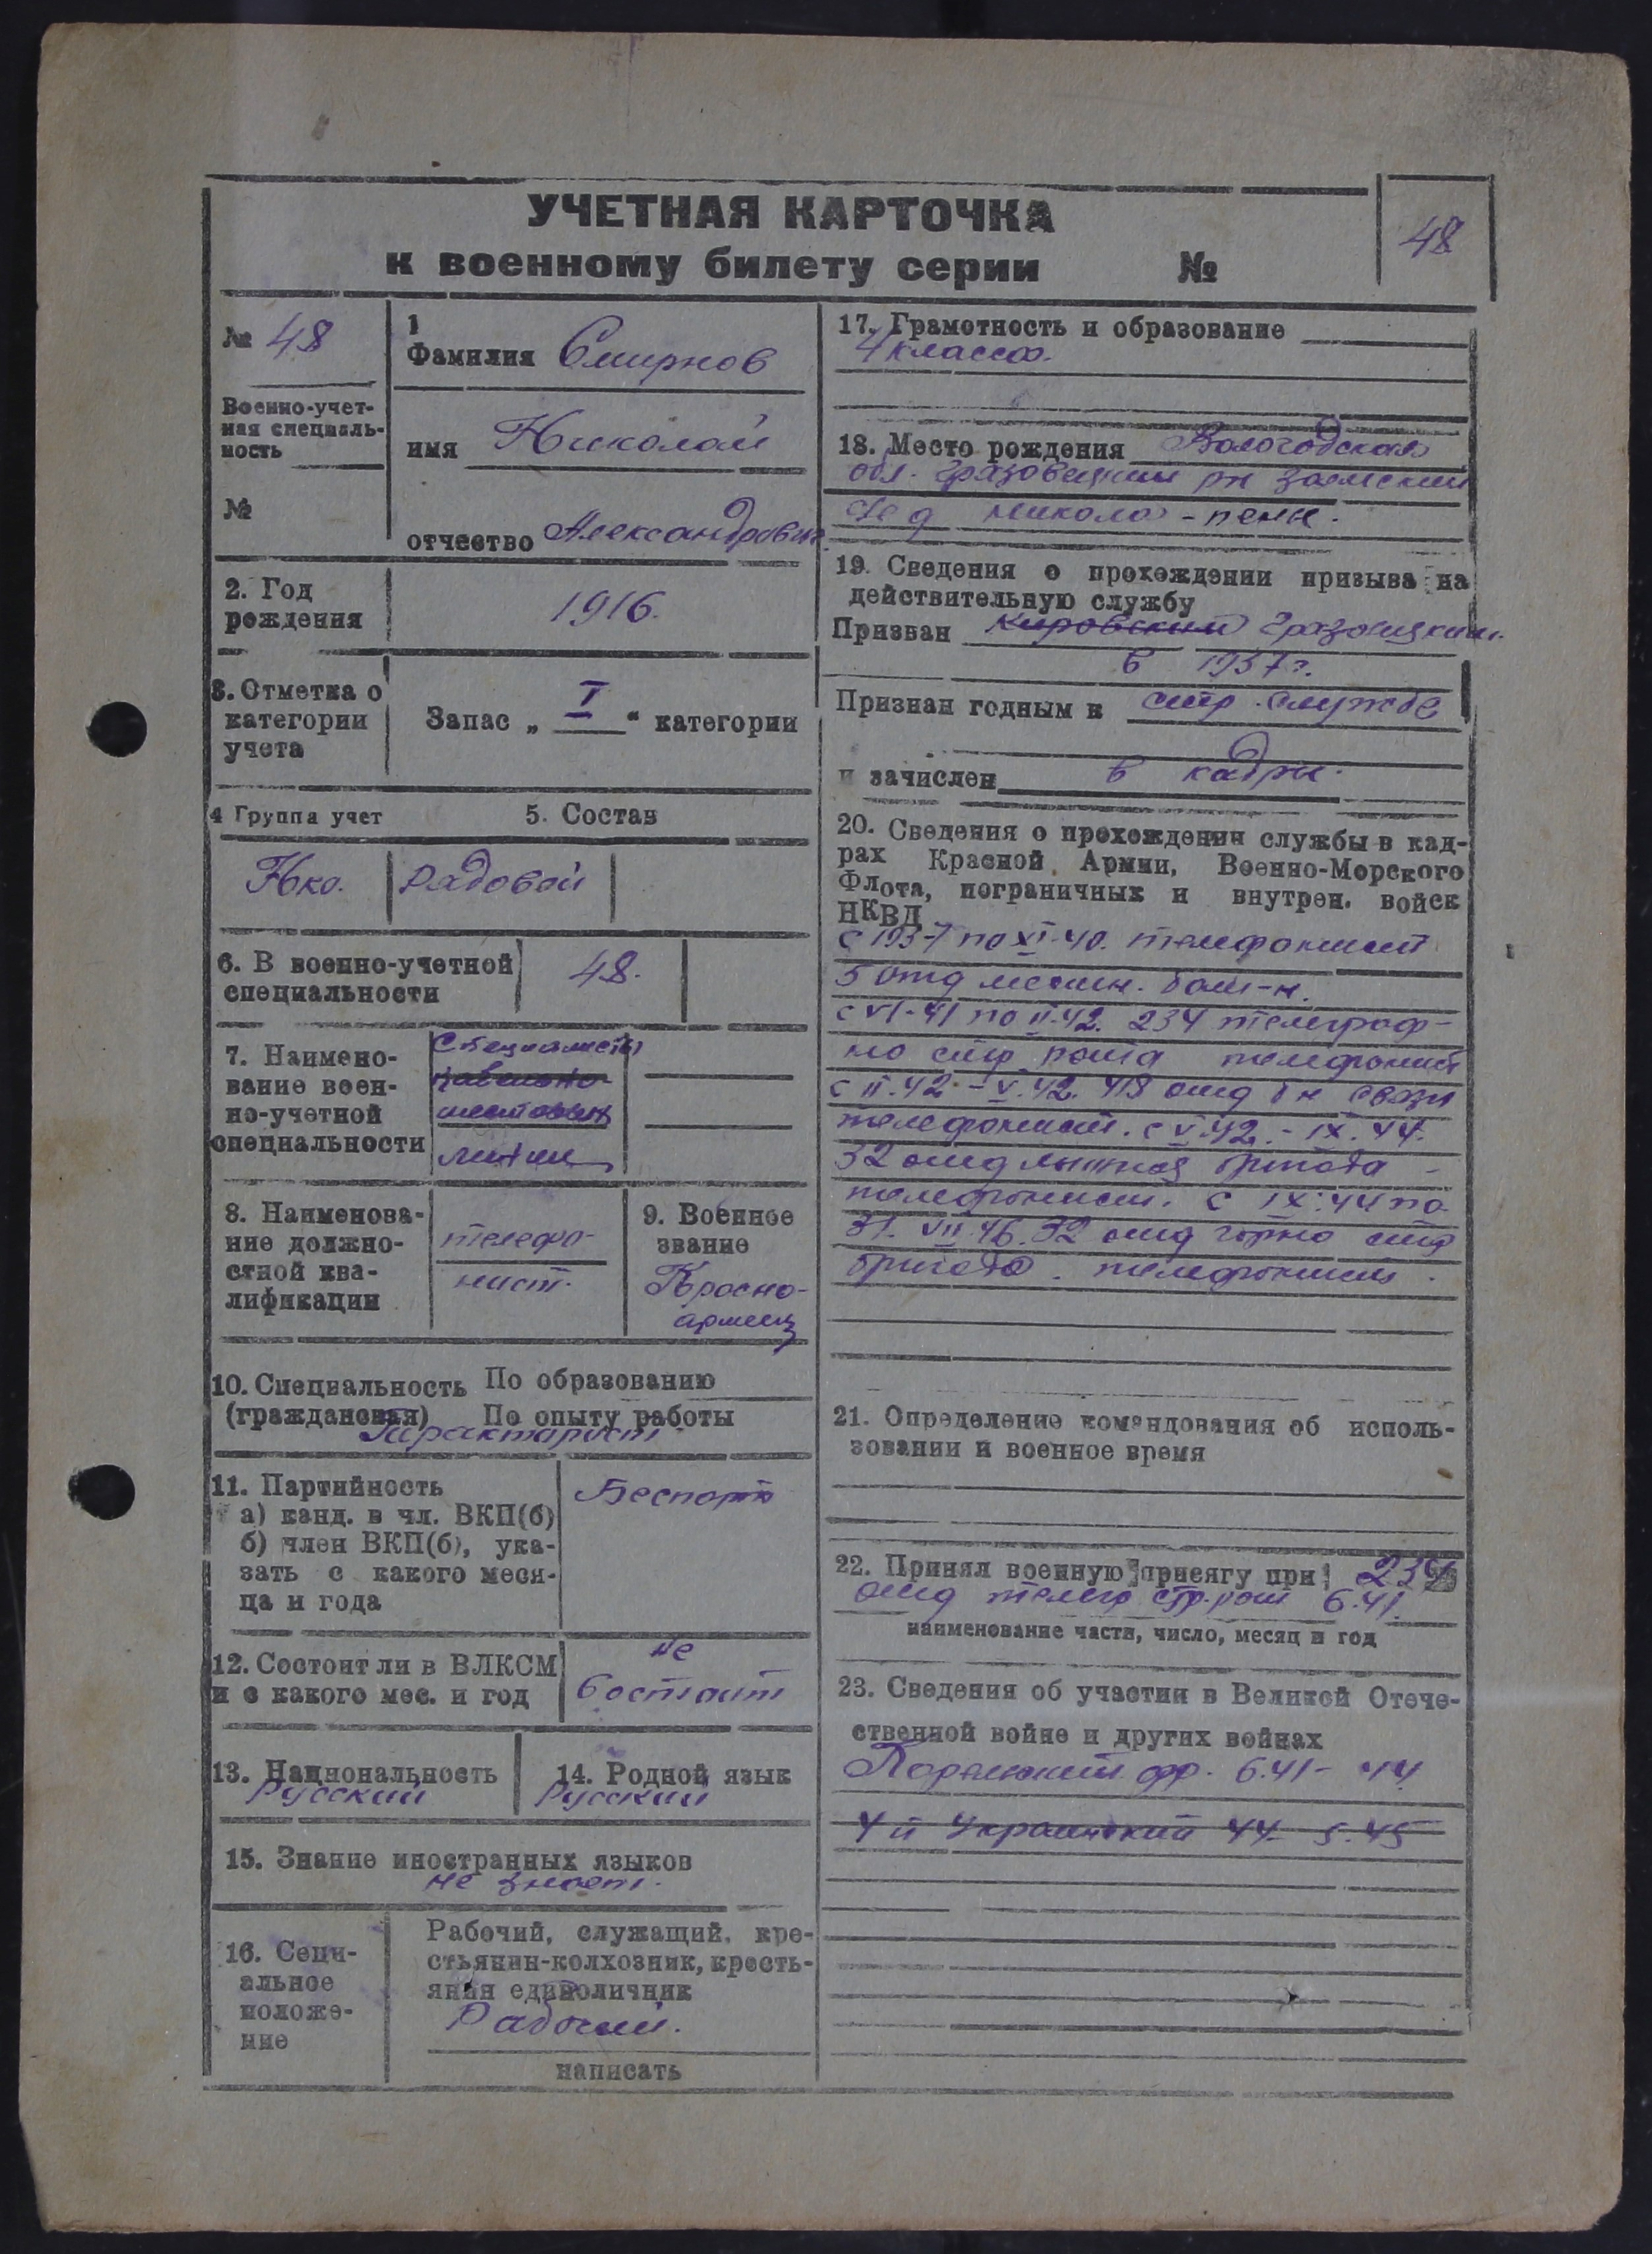 УЧЕТНАЯ КАРТОЧКА
к военному билету серии №
48
№ 48
Военно-учет-
ная специаль-
ность
№
1
Фамилия Смирнов
имя Николай
отчество Александрович
2. Год
рождения
1916.
3. Отметка о
категории
учета
Запас „ I “ категории
4 Группа учет
5. Состав
Нко.
Рядовой
6. В военно-учетной
специальности
48.
7. Наимено-
вание воен-
но-учетной
специальности
Специалисты
шестовых
линий
8. Наименова-
ние должно-
стной ква-
лификации
телефо-
нист.
9. Военное
звание
Красно-
армеец
10. Специальность По образованию
(гражданская) По опыту работы
Тракторист
11. Партийность
а) канд. в чл. ВКП(б)
б) член ВКП(б), ука-
зать с какого меся-
ца и года
Беспарт
12. Состоит ли в ВЛКСМ
и с какого мес. и год
не
состоит
13. Национальность
Русский
14. Родной язык
Русский
15. Знание иностранных языков
не знает.
16. Соци-
альное
положе-
ние
Рабочий, служащий, кре-
стьянин-колхозник, кресть-
янин единоличник
Рабочий.
написать
17. Грамотность и образование
4 класса.
18. Место рождения Вологодская
обл. Грязовецкий рн
д Никола-пены.
19. Сведения о прохождении призыва на
действительную службу
Призван Кировский Грязовецким
в 1937 г.
Признан годным к стр. службе
и зачислен в кадры.
20. Сведения о прохождении службы в кад-
рах Красной Армии, Военно-Морского
Флота, пограничных и внутрен. войск
НКВД
с 1937 по XI-40. телефонист
5 отд местн. бат-н.
с VI-41 по II-42. 234 телеграф-
но стр рота телефонист
с II.42 - V.42. 418 отд б н связи
телефонист. с V.42. - IX.44.
32 отд лыжная бригада -
телефонист. с IX.44 по
31. VII.46. 32 отд горно стр
бригада. телефонист.
21. Определение командования об исполь-
зовании в военное время
22. Принял военную присягу при 234
отд телегр стр. рот 6.41.
наименование части, число, месяц и год
23. Сведения об участии в Великой Отече-
ственной войне и других войнах
Карельский фр. 6.41- 44.
4 й Украинский 44- 5.45